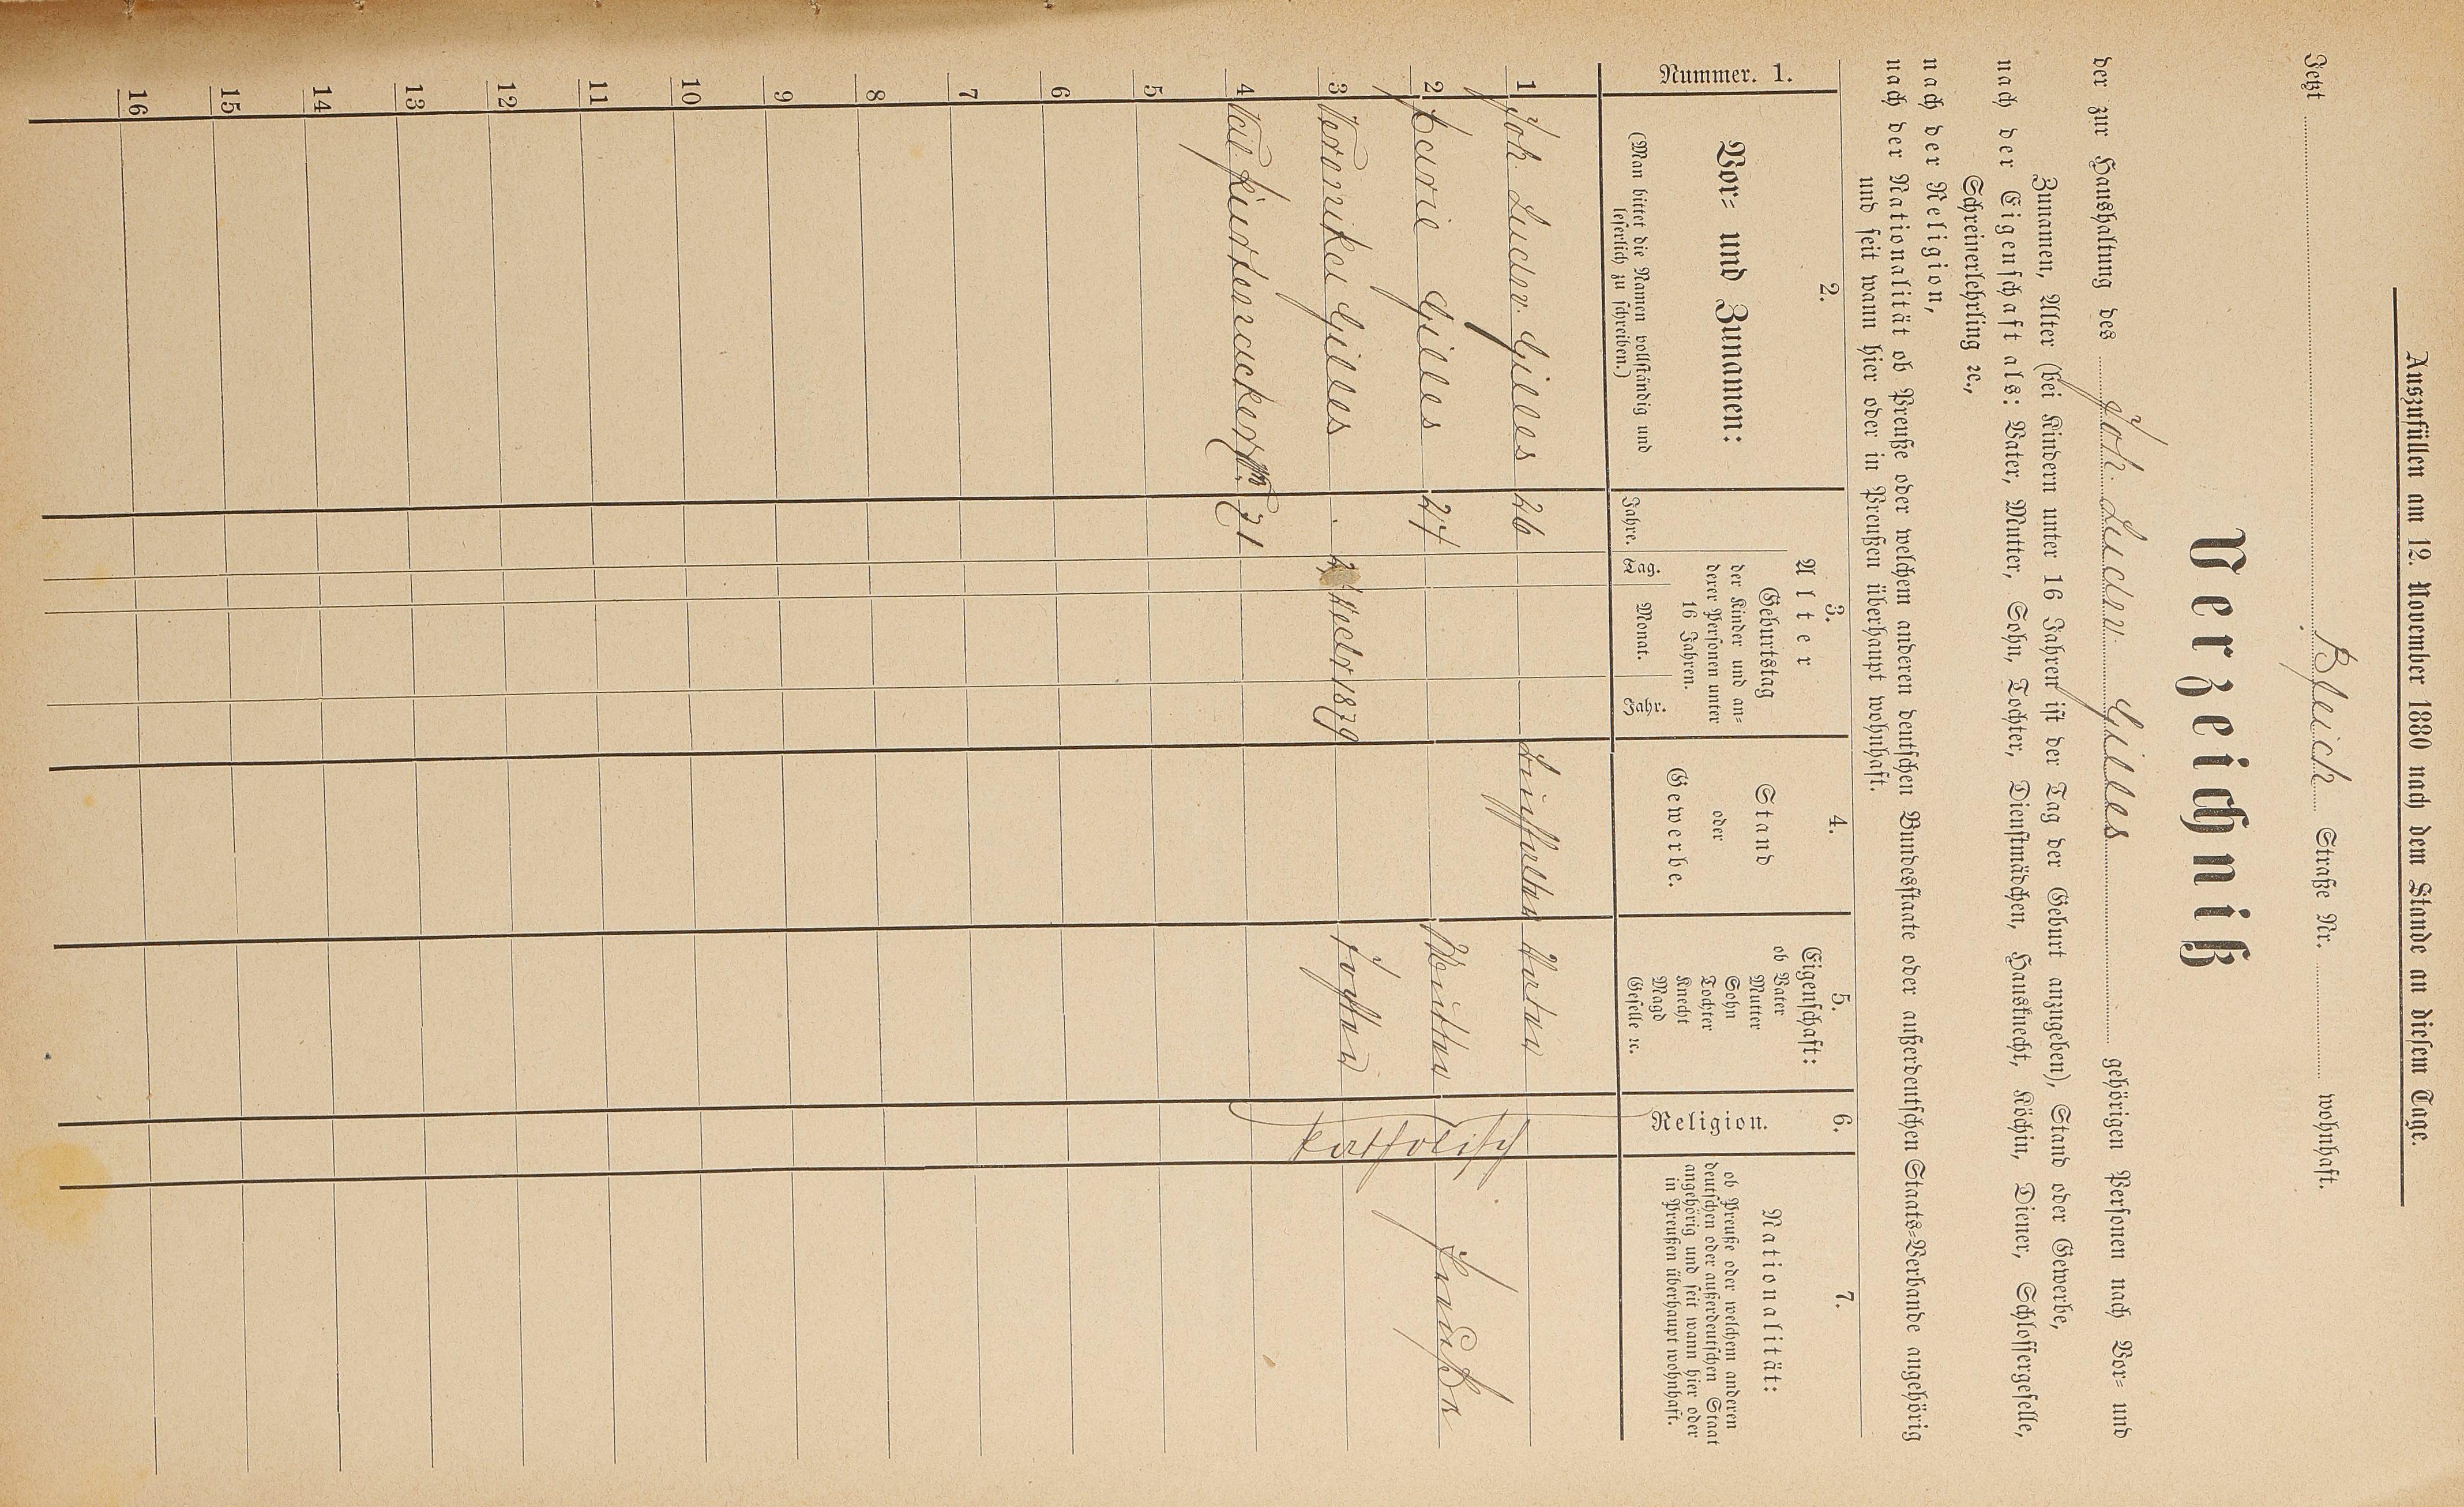 Auszufüllen am 12. November 1880 nach dem Stande an diesem Tage.
Jetzt Bleich Straße Nr. wohnhaft.
Verzeichniß
der zur Haushaltung des Joh. Ludw. Gilles gehörigen Personen nach Vor- und
Zunamen, Alter (bei Kindern unter 16 Jahren ist der Tag der Geburt anzugeben), Stand oder Gewerbe,
nach der Eigenschaft als: Vater, Mutter, Sohn, Tochter, Dienstmädchen, Hausknecht, Köchin, Diener, Schlossergeselle,
Schreinerlehrling ꝛc.,
nach der Religion,
nach der Nationalität ob Preuße oder welchem anderen deutschen Bundesstaate oder außerdeutschen Staats-Verbande angehörig
und seit wann hier oder in Preußen überhaupt wohnhaft.
Nummer. 1.
2.
Vor- und Zunamen:
(Man bittet die Namen vollständig und
leserlich zu schreiben.)
3.
Alter
Jahre.
Geburtstag
der Kinder und an-
derer Personen unter
16 Jahren.
Tag. Monat. Jahr.
4.
Stand
oder
Gewerbe.
5.
Eigenschaft:
ob Vater
Mutter
Sohn
Tochter
Knecht
Magd
Geselle ꝛc.
6.
Religion.
7.
Nationalität:
ob Preuße oder welchem anderen
deutschen oder außerdeutschen Staat
angehörig und seit wann hier oder
in Preußen überhaupt wohnhaft.
1 Joh. Ludw. Gilles 26 Vater
2 Marie Gilles 27 Mutter katholisch Preuße
3 Veronika Gilles 1879 Tochter
4 31
5
6
7
8
9
10
11
12
13
14
15
16